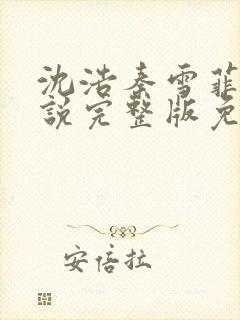 沈浩秦雪菲
說完整版免
安倍拉